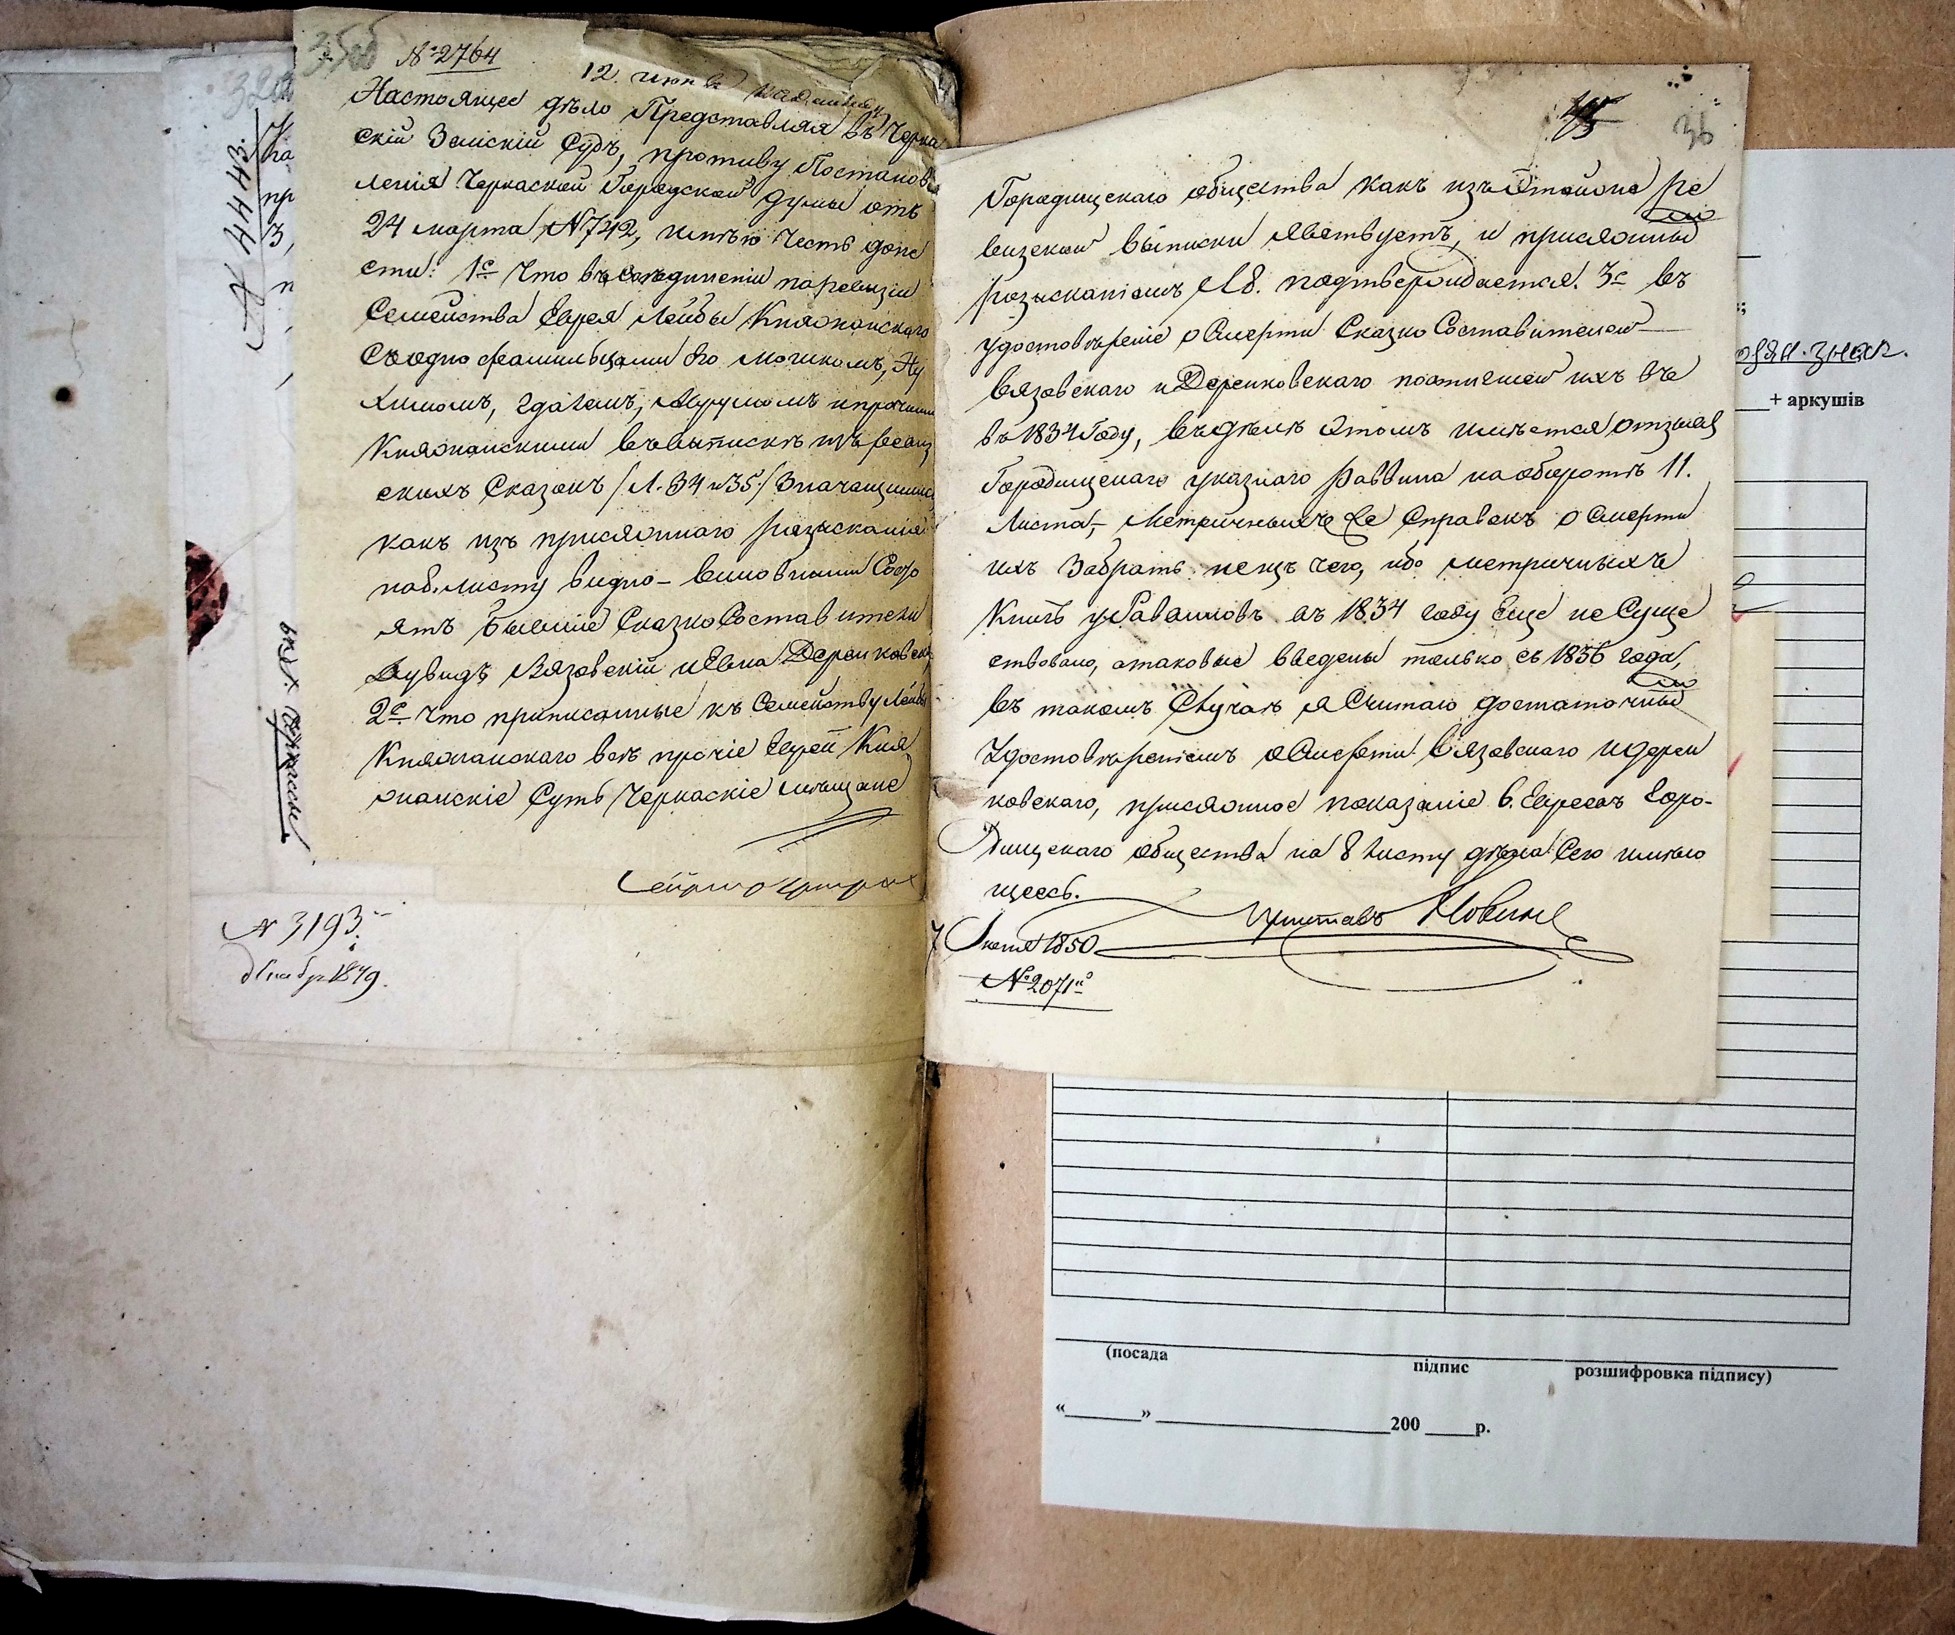 35об
№ 2764
12 июня
Настоящее дѣло Представляя въ Черка
скій Земскій Судъ, противу Постанов
ленія Черкаской Городской думы отъ
24 марта № 742, имѣю честь доне
сти: 1е Что въ соединеніи по ревизіи
Семейства Еврея Лейбы Княжанскаго
Съ однофамильцами его Мошкомъ, Ну
химомъ, и прочими
Княжанскими въ выпискѣ изъ ревиз
скихъ Сказокъ /Л. 34 и 35/ Значащимися
какъ изъ присяжнаго розысканія
на 8. листу видно – виновными Состо
ятъ бывшіе СказкоСоставители
Дувидъ Вязовскій и Евна Деренковскій
2е Что приписанные къ Семейству Лейбы
Княжанскаго всѣ прочіе Евреи Кня
жанскіе Суть Черкаскіе мѣщане
№ 3193.
Декабр 1849.
№ 4443.
36
Городищскаго общества какъ изъ Этойже ре
визской выписки явствуетъ, и присяжнымъ
розысканіемъ Л 8. подтверждается. 3е въ
удостовѣреніе о Смерти СказкоСоставителей
Вязовскаго и Деренковскаго поступившей ихъ
въ 1834 Году, въ дѣлѣ Этомъ имѣется отзывъ
Городищскаго указнаго Раввина на оборотѣ 11.
Листа, Метричныхъ же Справокъ о Смерти
ихъ Забрать не изъ чего, ибо метричныхъ
Книгъ у Раввиновъ въ 1834 году Еще не Суще
ствовало, а таковые введены только съ 1836 года,
въ такомъ Случаѣ я Считаю достаточнымъ
Удостовѣреніемъ о Смерти Вязовскаго и Дерен
ковскаго, присяжное показаніе 6. Евреевъ Горо-
дищскаго общества на 8 листу дѣла Сего имѣю
щееся.
Приставъ
7 Іюня 1850
№ 2071й
+ аркушів
(посада
підпис
розшифровка підпису)
«______» ____________________200 ____р.